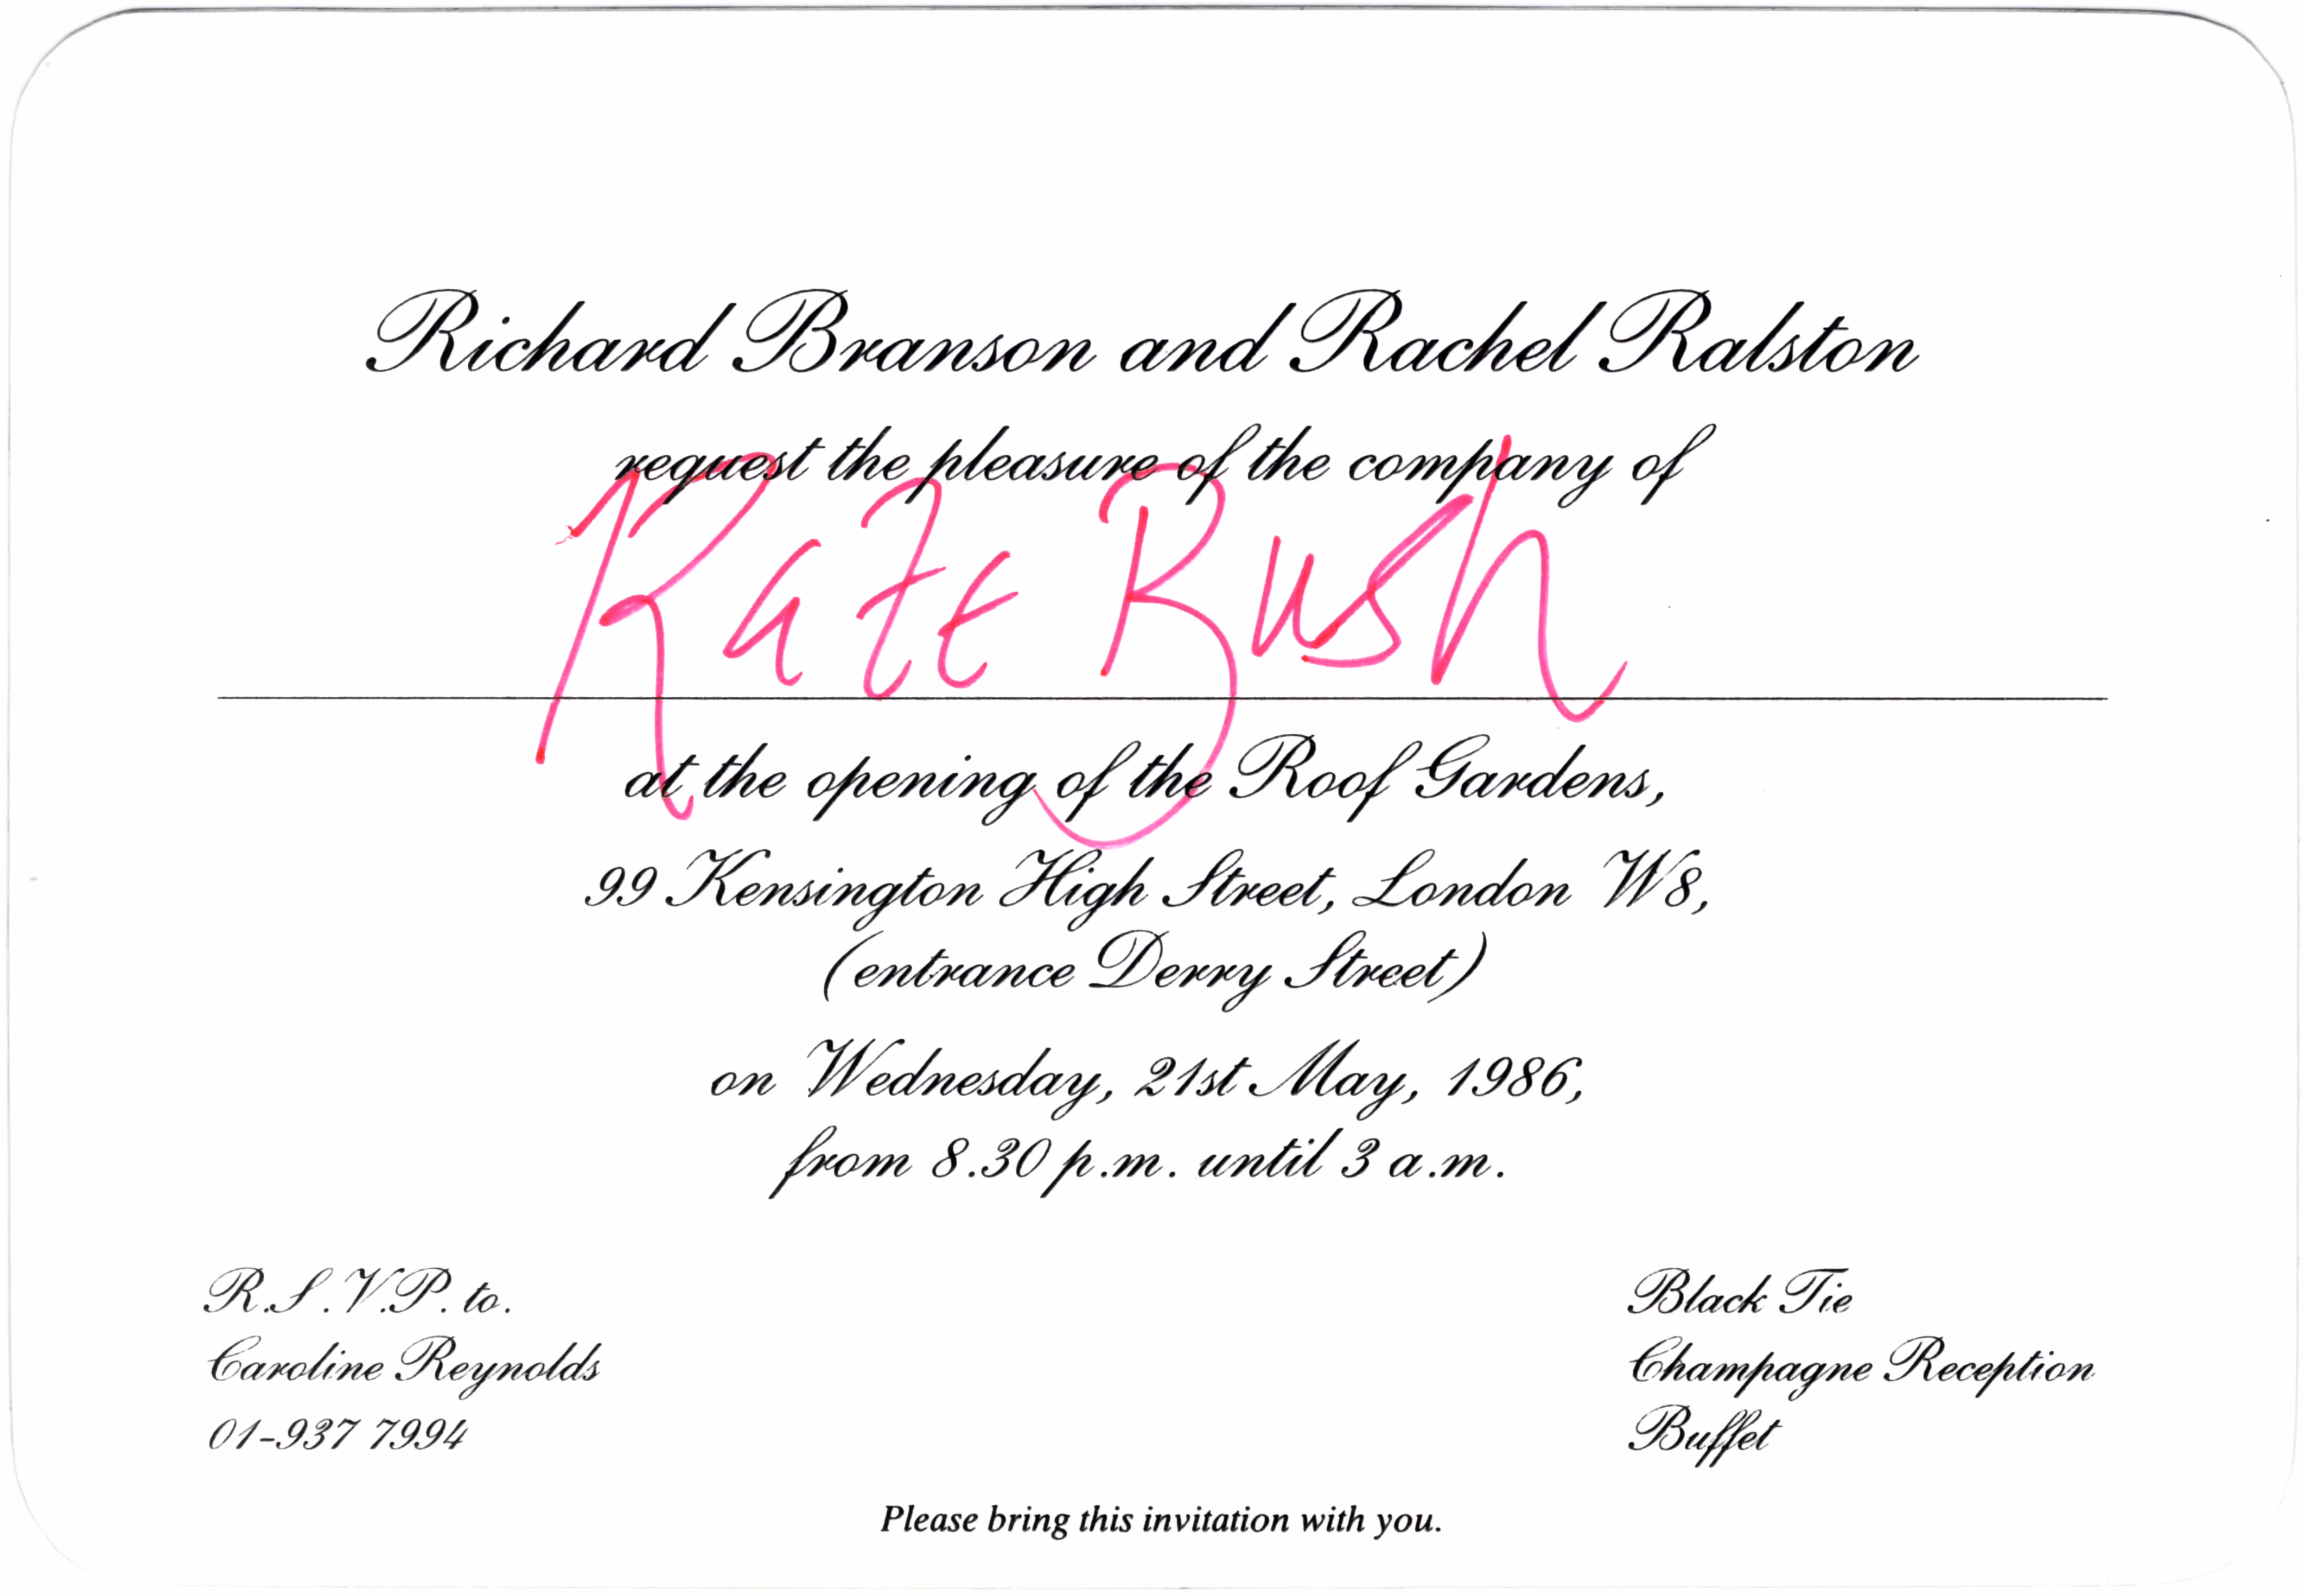 Richard Branson and Rachel Ralston
request the pleasure of the company of
Kate Bush
at the opening of the Roof Gardens,
99 Kensington High Street, London W8,
(entrance Derry Street)
on Wednesday, 21st May, 1986,
from 8.30 p.m. until 3 a.m.
R.S.V.P. to.
Caroline Reynolds
01-937 7994
Black Tie
Champagne Reception
Buffet
Please bring this invitation with you.